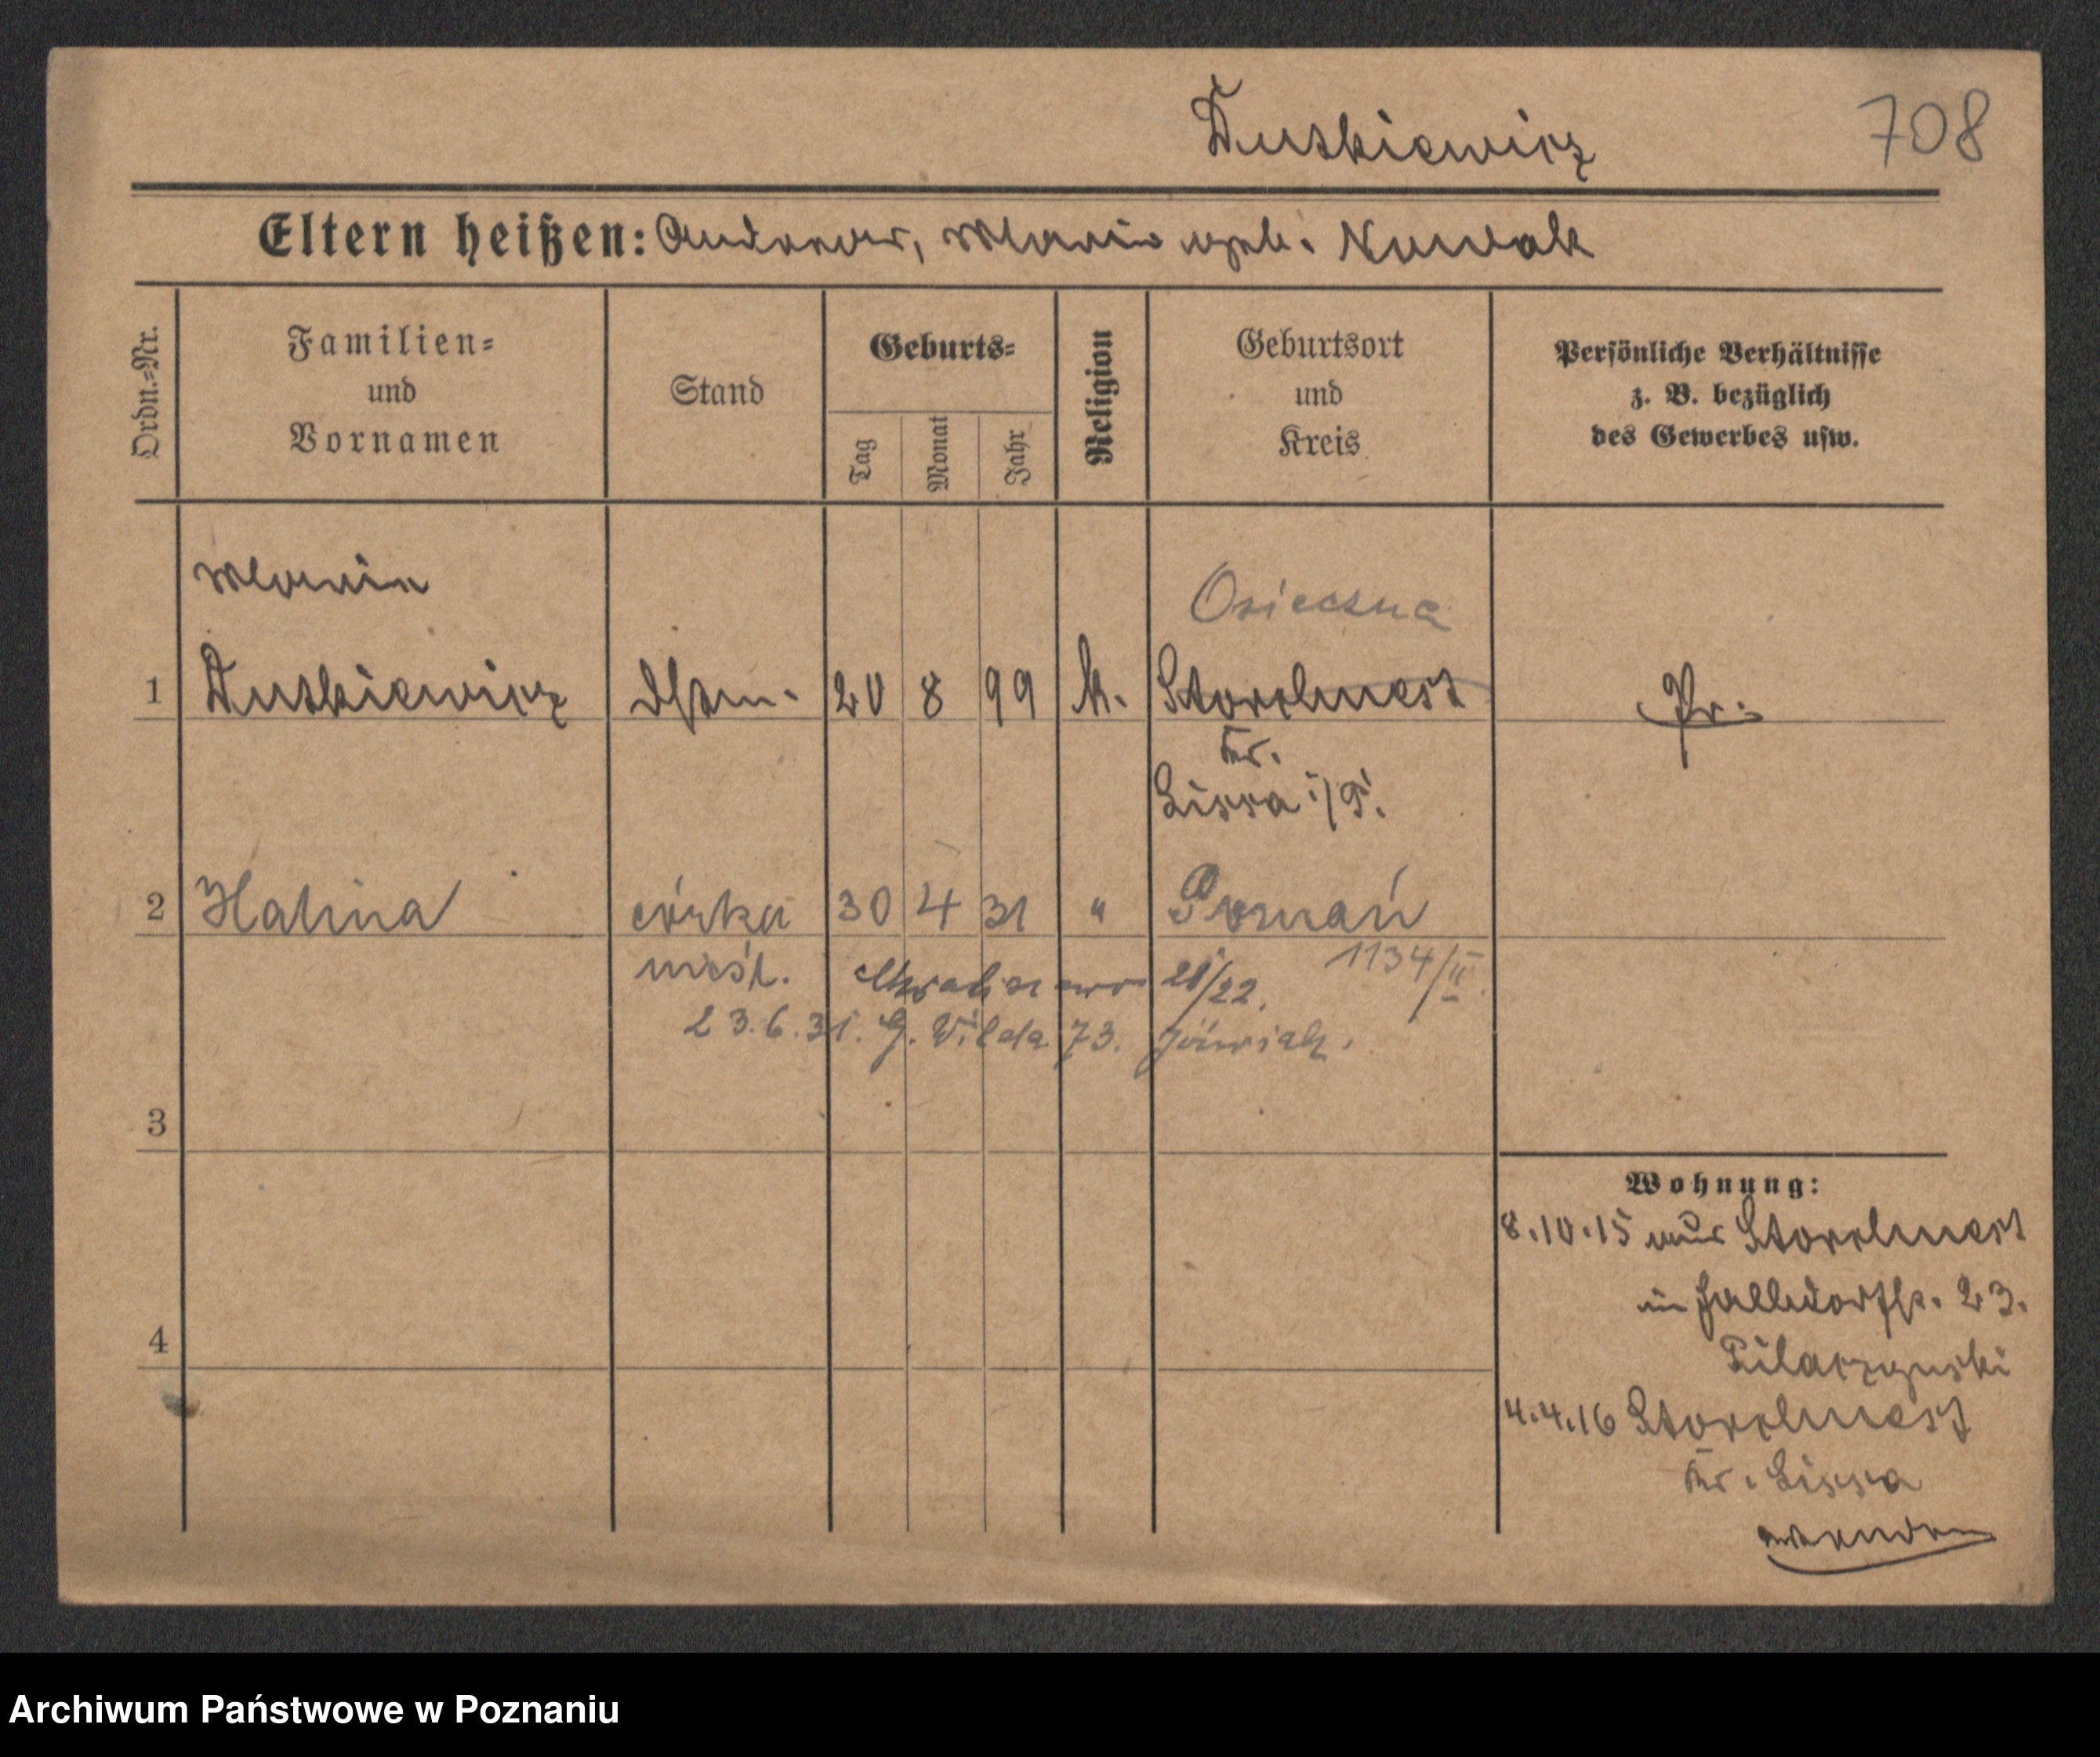 Dutkiewicz 708
Eltern heißen: Andreas, Maria geb. Nowak
Ordn.=Nr.
Familien=
und
Vornamen
Stand
Geburts=
Tag
Monat
Jahr
Religion
Geburtsort
und
Kreis
Persönliche Verhältnisse
z. B. bezüglich
des Gewerbes usw.
Maria
Osieczna
1 Dutkiewicz 20 8 99 k. Storchnest Pr.
Kr.
Lissa i/P.
2 Halina córka 30 4 31 " Poznań
nieśl. 21/22. 1134/II.
23.6.31. G. Wilda 73.
3
Wohnung:
8.10.15 aus Storchnest
in 23.
Pilarzynski
4
4.4.16 Storchnest
Kr. Lissa
wenden
Archiwum Państwowe w Poznaniu